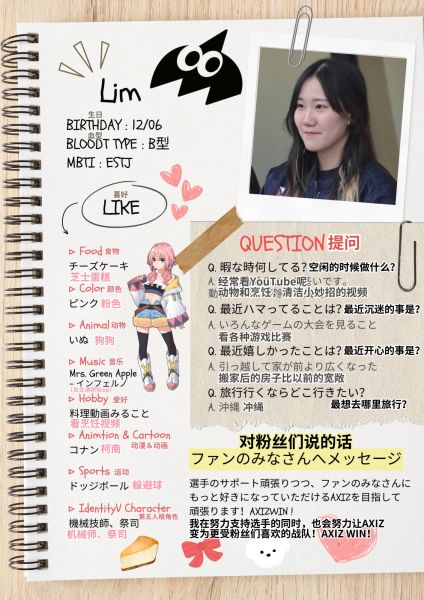 Lim
生日
BIRTHDAY : 12/06
血型
BLOODT TYPE : B型
MBTI : ESTJ
喜好
LIKE
Food 食物
チーズケーキ
芝士蛋糕
Color 颜色
ピンク 粉色
Animal 动物
いぬ 狗狗
Music 音乐
Mrs. Green Apple
- インフェルノ
Hobby 爱好
料理動画みること
看烹饪视频
Animtion & Cartoon
动漫&动画
コナン 柯南
Sports 运动
ドッジボール 躲避球
IdentityV Character
第五人格角色
機械技師、祭司
机械师、祭司
QUESTION 提问
Q. 暇な時何してる? 空闲的时候做什么?
A. 经常看YouTube呢
动物和烹饪、清洁小妙招的视频
Q. 最近ハマってることは? 最近沉迷的事是?
A. いろんなゲームの大会を見ること
看各种游戏比赛
Q. 最近嬉しかったことは? 最近开心的事是?
A. 引っ越して家が前より広くなった
搬家后的房子比以前的宽敞
Q. 旅行行くならどこ行きたい?
最想去哪里旅行?
A. 沖縄 冲绳
对粉丝们说的话
ファンのみなさんへメッセージ
選手のサポート頑張りつつ、ファンのみなさんに
もっと好きになっていただけるAXIZを目指して
頑張ります! AXIZWIN !
我在努力支持选手的同时，也会努力让AXIZ
变为更受粉丝们喜欢的战队！AXIZ WIN！